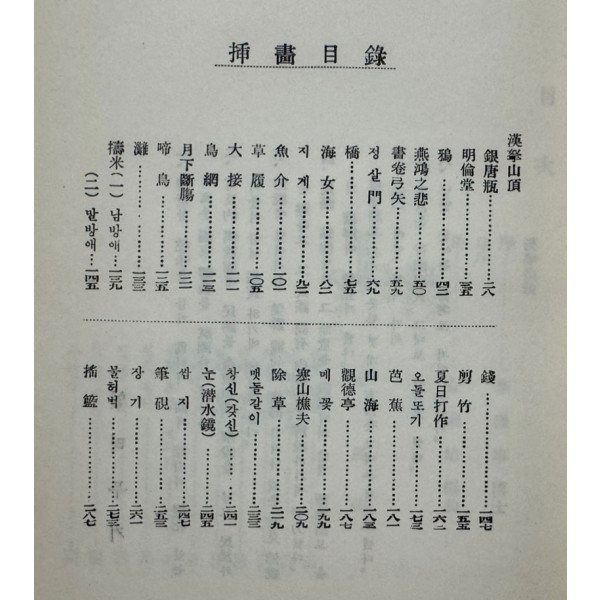 揷畵目錄
漢拏山頂
銀唐瓶……二八
明倫堂……三五
鴉……四二
燕鴻之悲……五〇
書卷弓矢……五九
정살門……六九
橋……七五
海女……八二
지게……九二
魚介……一〇一
草履……一〇五
大接……一一一
鳥網……一二三
月下斷膓……一三二
啼鳥……一三五
灘……一三三
擣米(一)남방애……一三九
(二)말방애……一四五
錢……一四七
剪竹……一五五
夏日打作……一六二
오돌또기……一七三
芭蕉……一八一
山海……一八三
觀德亭……一八七
메꽃……一九九
塞山樵夫……二〇九
除草……二一九
맷돌갈이……二三三
창신(갖신)……二四一
눈(潛水鏡)……二四五
쌈지……二四七
筆硯……二五三
장기……二六一
물허벅……二七三
搖籃……二八七